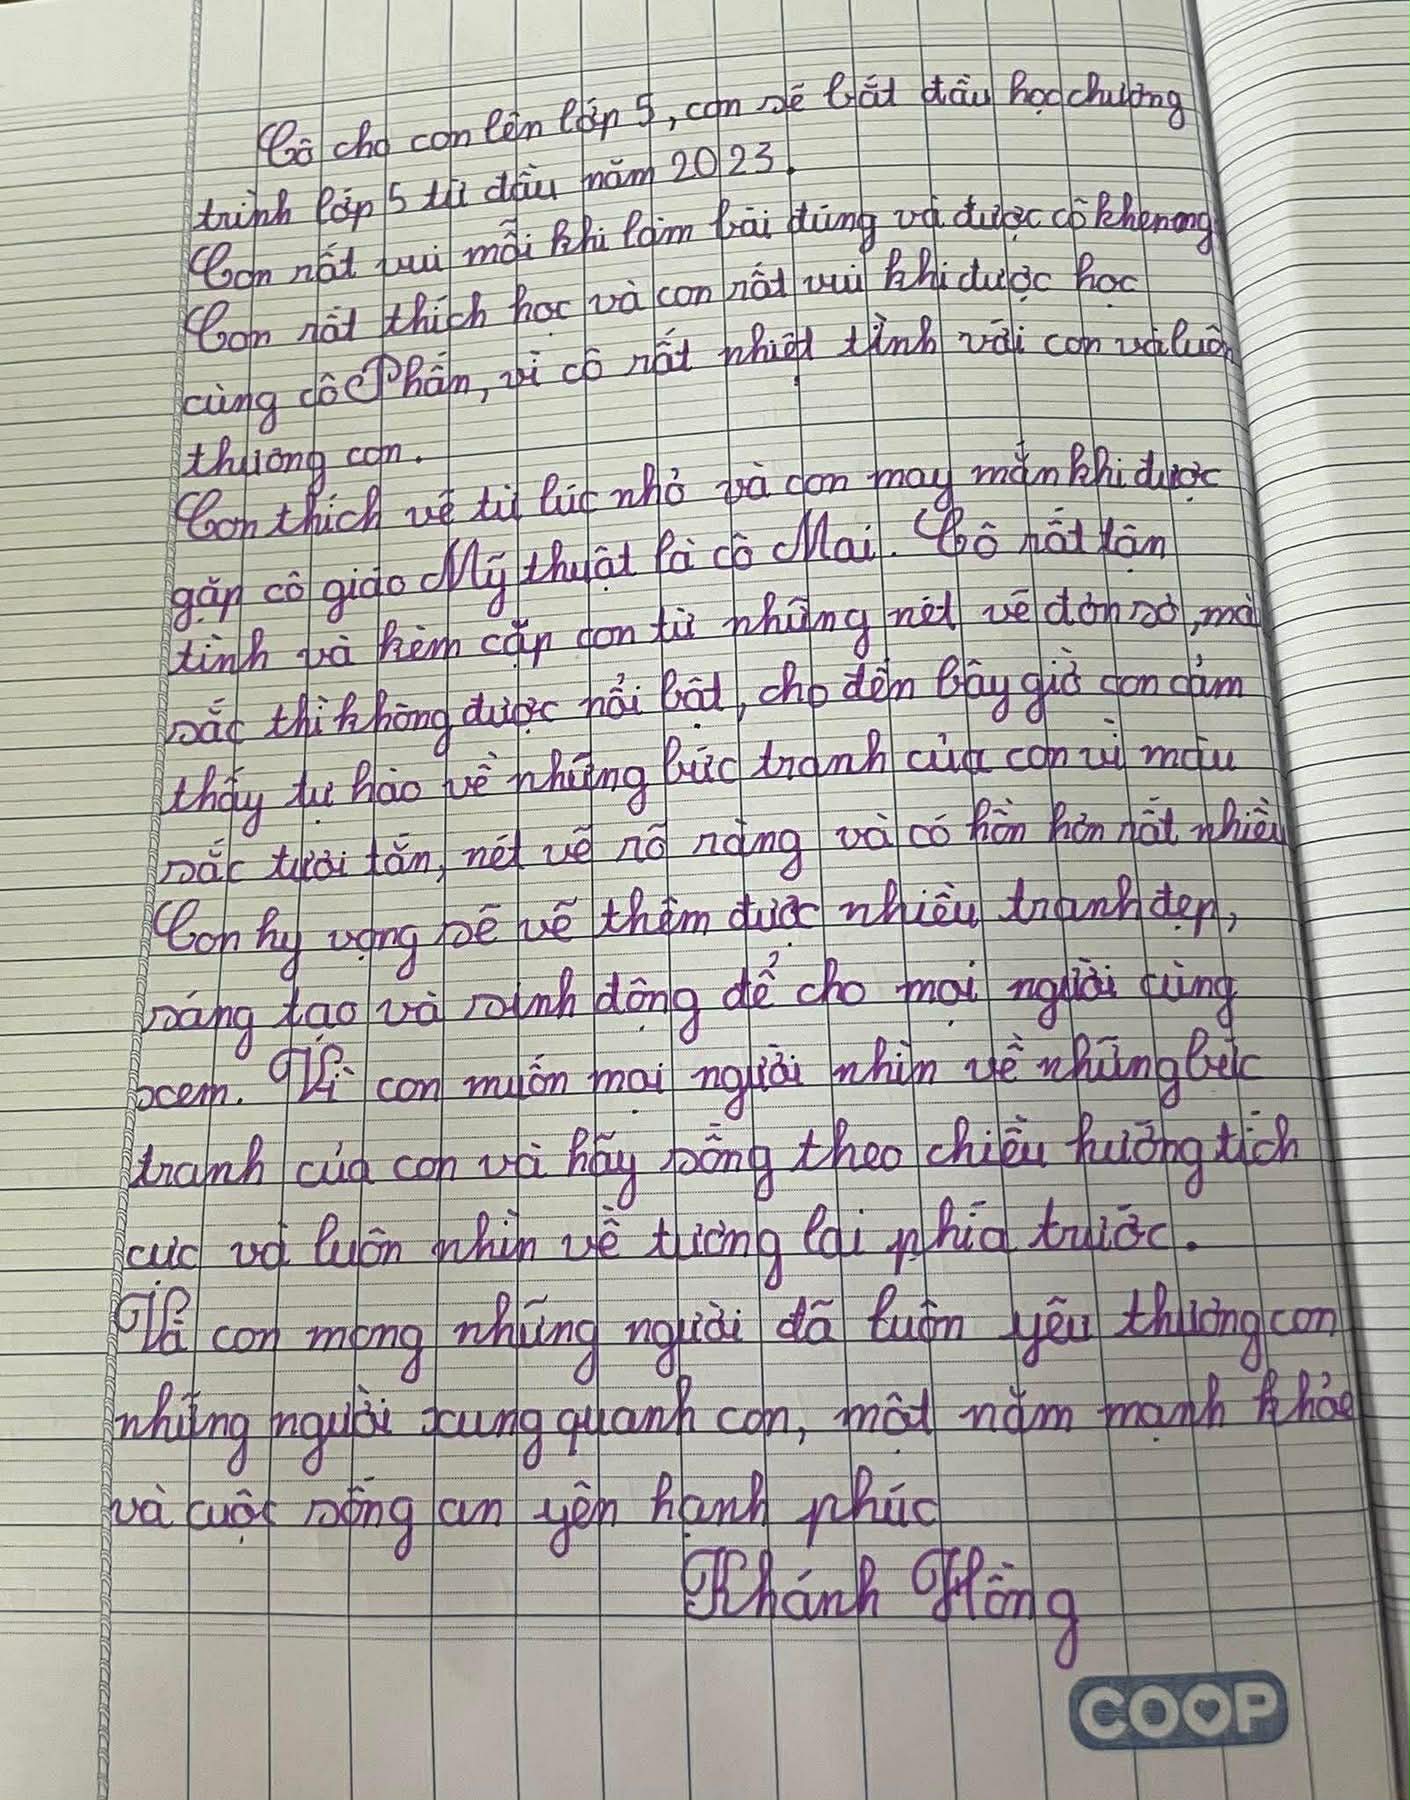 Cô cho con lên lớp 5, con sẽ bắt đầu học chương
trình lớp 5 từ đầu năm 2023.
Con rất vui mỗi khi làm bài đúng và được cô khen ong
Con rất thích học và con rất vui khi được học
cùng cô Phấn, vì cô rất nhiệt tình với con và luôn
thương con.
Con thích vẽ từ lúc nhỏ và con may mắn khi được
gặp cô giáo Mỹ thuật là cô Mai. Cô rất tận
tình và kèm cặp con từ những nét vẽ đơn sơ, mà
sắc thì không được nổi bật, cho đến bây giờ con cảm
thấy tự hào về những bức tranh của con vì màu
sắc tươi tắn, nét vẽ rõ ràng và có hồn hơn rất nhiều
Con hy vọng sẽ vẽ thêm được nhiều tranh đẹp,
sáng tạo và sinh động để cho mọi người cùng
xem. Vì con muốn mọi người nhìn về những bức
tranh của con và hãy sống theo chiều hướng tích
cực và luôn nhìn về tương lai phía trước.
Và con mong những người đã luôn yêu thương con
những người xung quanh con, một năm mạnh khỏe
và cuộc sống an yên hạnh phúc
Khánh Hồng
COOP